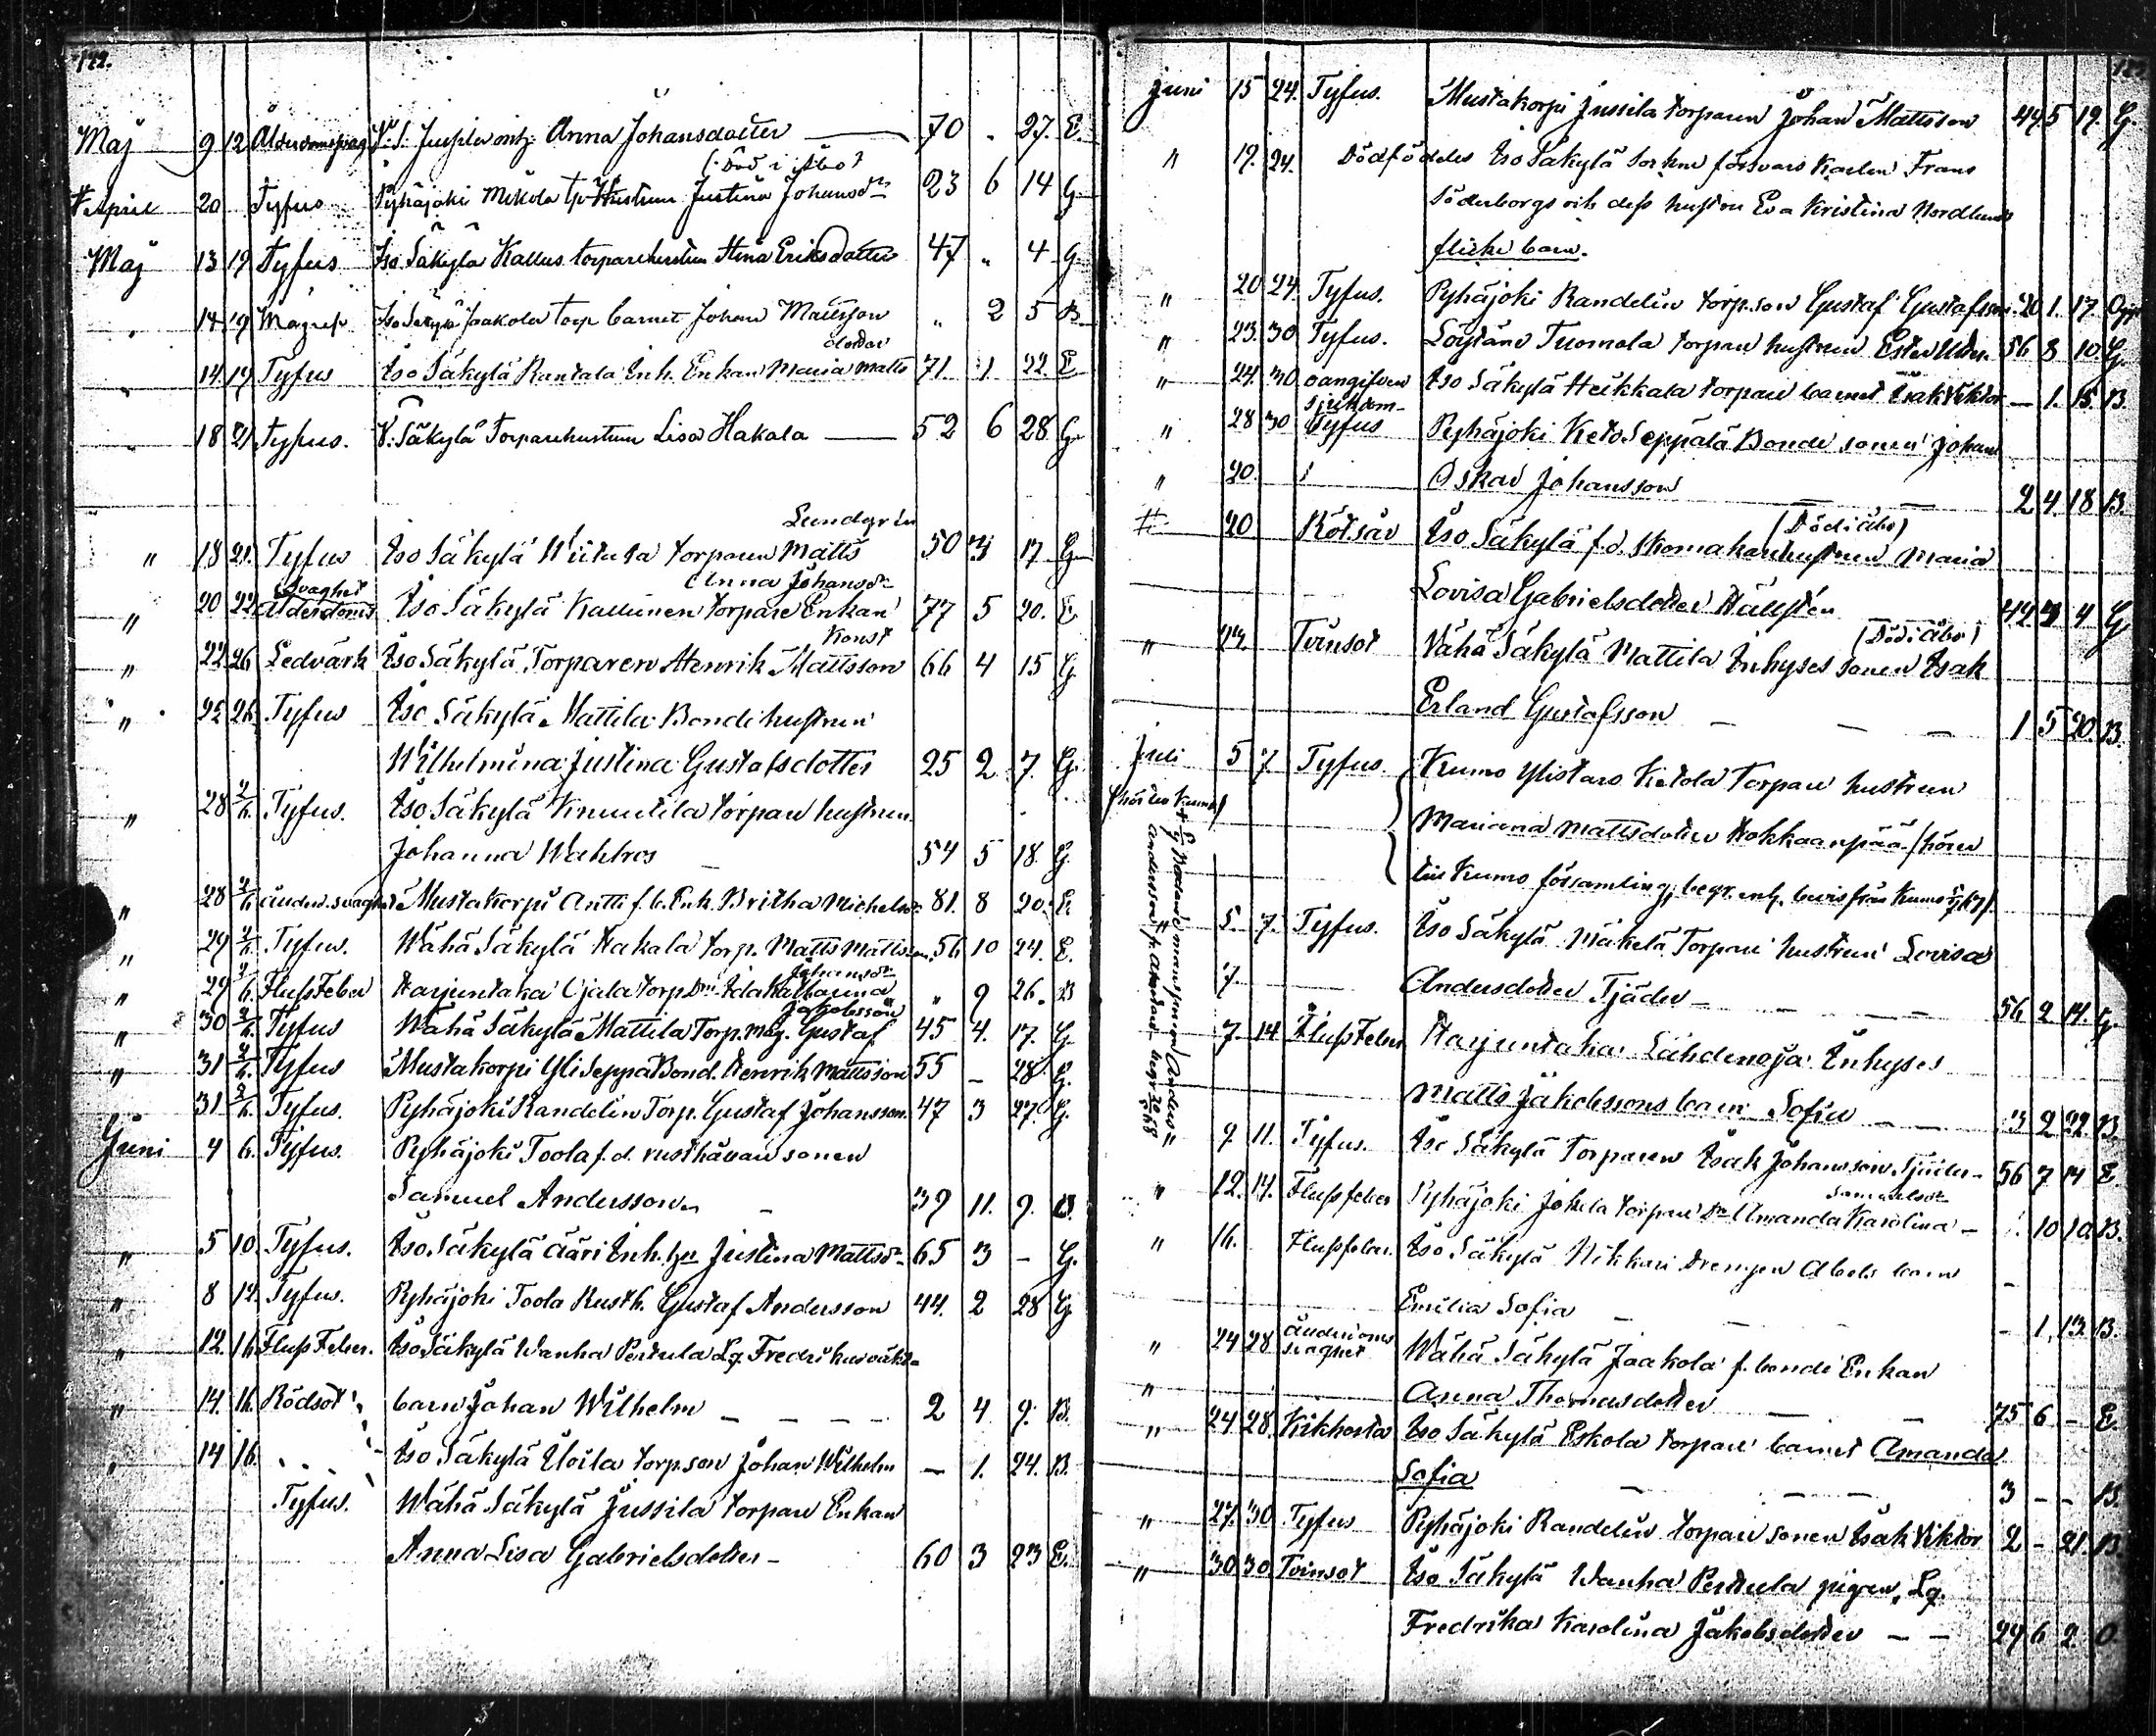 122.
Maj 9 12 Ålderdomssvag. V. S. Jussila enk. Anna Johansdotter — 70 „ 27. E.
(Död i Åbo)
April 20 Tyfus Pyhäjoki Mikola tp. Hustrun Justina Johansdr 23 6 14 G
Maj 13 19 Tyfus Iso Säkylä Kallus torparehustru Stina Eriksdotter 47 „ 4 G
„ 14 19 Magref Iso Säkylä Jaakola torp barnet Johan Mattsson „ 2 5 B
dotter
„ 14 19 Tyfus Iso Säkylä Rantala Inh. Enkan Maria Matts 71. 1 22. E
„ 18 21 Tyfus. V. Säkylä Torparehustrun Lisa Hakala — 52 6 28 G
Lundgren
„ 18 21. Tyfus Iso Säkylä torparen Matts 50 3 17 G
Svaghet Anna Johansdr
„ 20 22 Ålderdoms Iso Säkylä Kallinen torpare Enkan 77 5 20. E.
Konst
„ 22 26 Ledvärk Iso Säkylä Torparen Henrik Mattsson 66 4 15 G.
„ 25 26. Tyfus Iso Säkylä Mattila Bonde hustrun
Wilhelmina Justina Gustafsdotter 25 2 7. G.
„ 28 2/6. Tyfus. Iso Säkylä Knuutila torpare hustrun
Johanna Wahlros — 54 5 18. G.
„ 28 2/6 ålderd. svaghet Mustakorpi Antti f. b. Enk. Britha Michelsdr 81. 8 20. E.
„ 29 2/6. Tyfus. Wähä Säkylä Hakala torp. Matts Mattsson. 56 10 24. E.
Johansdr
„ 29 2/6. Fluss Feber Harjuntaka Ojala torp. Dr. Ida Katharina „ 9 26. B
Jakobsson
„ 30 2/6. Tyfus Wähä Säkylä Mattila Torp. måg. Gustaf 45 4. 17. G.
„ 31 2/6. Tyfus Mustakorpi Yli Seppä Bond. Henrik Mattsson 55 – 28. G.
31 2/6. Tyfus. Pyhäjoki Randelin Torp. Gustaf Johansson. 47 3 27. G.
Juni 4 6. Tyfus. Pyhäjoki Toola f. d. rusthållare sonen
Samuel Andersson – 39 11. 9. O.
„ 5 10. Tyfus. Iso Säkylä Ääri Enh. hu Justina Mattsdr 65 3 – G.
„ 8 12. Tyfus. Pyhäjoki Toola Rusth. Gustaf Andersson 44. 2 28 G
„ 12. 16 Fluss Feber. Iso Säkylä Wanha Perttula Lg. Fredr.
„ 14. 16. Rödsot barn Johan Wilhelm – – – – 2 4 9. B.
„ 14 16. Iso Säkylä Uoila torp. son Johan Wilhelm – 1. 24. B.
Tyfus. Wähä Säkylä Jussila torpare Enkan
Anna Lisa Gabrielsdotter – 60 3 23 E.
Juni 15 24. Tyfus. Mustakorpi Jussila torparen Johan Mattsson 44 5 19. G.
„ 19. 24. Dödföddes Iso Säkylä försvars Karlen Frans
Söderborgs och dess hustru Eva Kristina Nordlunds
flicke barn.
„ 20 24. Tyfus. Pyhäjoki Randelin torp. son Gustaf Gustafsson. 20 1. 17.
„ 23. 30 Tyfus. Löytäne Tuomola torpare hustrun Ester 56 8 10. G.
„ 24. 30 oangifven sjukdom Iso Säkylä Heikkala torpare barnet Isak Viktor — 1. 15. B.
„ 28 30 Tyfus Pyhäjoki Keto Seppälä Bonde sonen Johan
„ 20. Oskar Johansson — — 2 4. 18 B.
(Död i Åbo)
20 Rötsår Iso Säkylä f. d. skomakarehustrun Maria
Lovisa Gabrielsdotter Hällstén 44 4 G
(Död i Åbo)
„ Tvinsot Vähä Säkylä Mattila Inhyses sonen Isak
Erland Gustafsson – – – 1 5 20. B.
Juli 5 7. Tyfus. Kumo Ylistaro Ketola Torpare hustrun
(hör till Kumo) Mariana Mattsdotter Hohkaanpää (hörer
till Kumo församling, begr. enl. bevis från Kumo
5. 7. Tyfus. Iso Säkylä Mäkelä Torpare hustrun Lovisa
7. Andersdotter Tjäder – – – – 56 2 14. G.
7. 14 Fluss Feber Harjuntaka Lähdenoja Inhyses
Matts Jakobssons barn Sofia – – 3 2 22. B.
9 11. Tyfus. Iso Säkylä Torparen Isak Johansson Tjäder – 56 7 14 E.
Samuelsdr
„ 12. 14. Flussfeber Pyhäjoki Jokela torpare Dr Amanda Karolina – 10 10. B.
„ 16. Flussfeber. Iso Säkylä Nikkari drengen Abels barn
Emilia Sofia – – – – 1. 13. B.
„ 24 28 ålderdoms svaghet Wähä Säkylä Jaakola f. bonde Enkan
„ Anna Thomasdotter – – 75 6 – E.
„ 24 28. Kikhosta Iso Säkylä Eskola torpare barnet Amanda
Sofia – – – 3 – – B.
„ 27. 30 Tyfus Pyhäjoki Randelin torpare sonen Isak Viktor 2 – 21. B.
„ 30 30 Tvinsot Iso Säkylä Wanha Perttula pigan, Lg.
Fredrika Karolina Jakobsdotter – – 29 6 2. O.